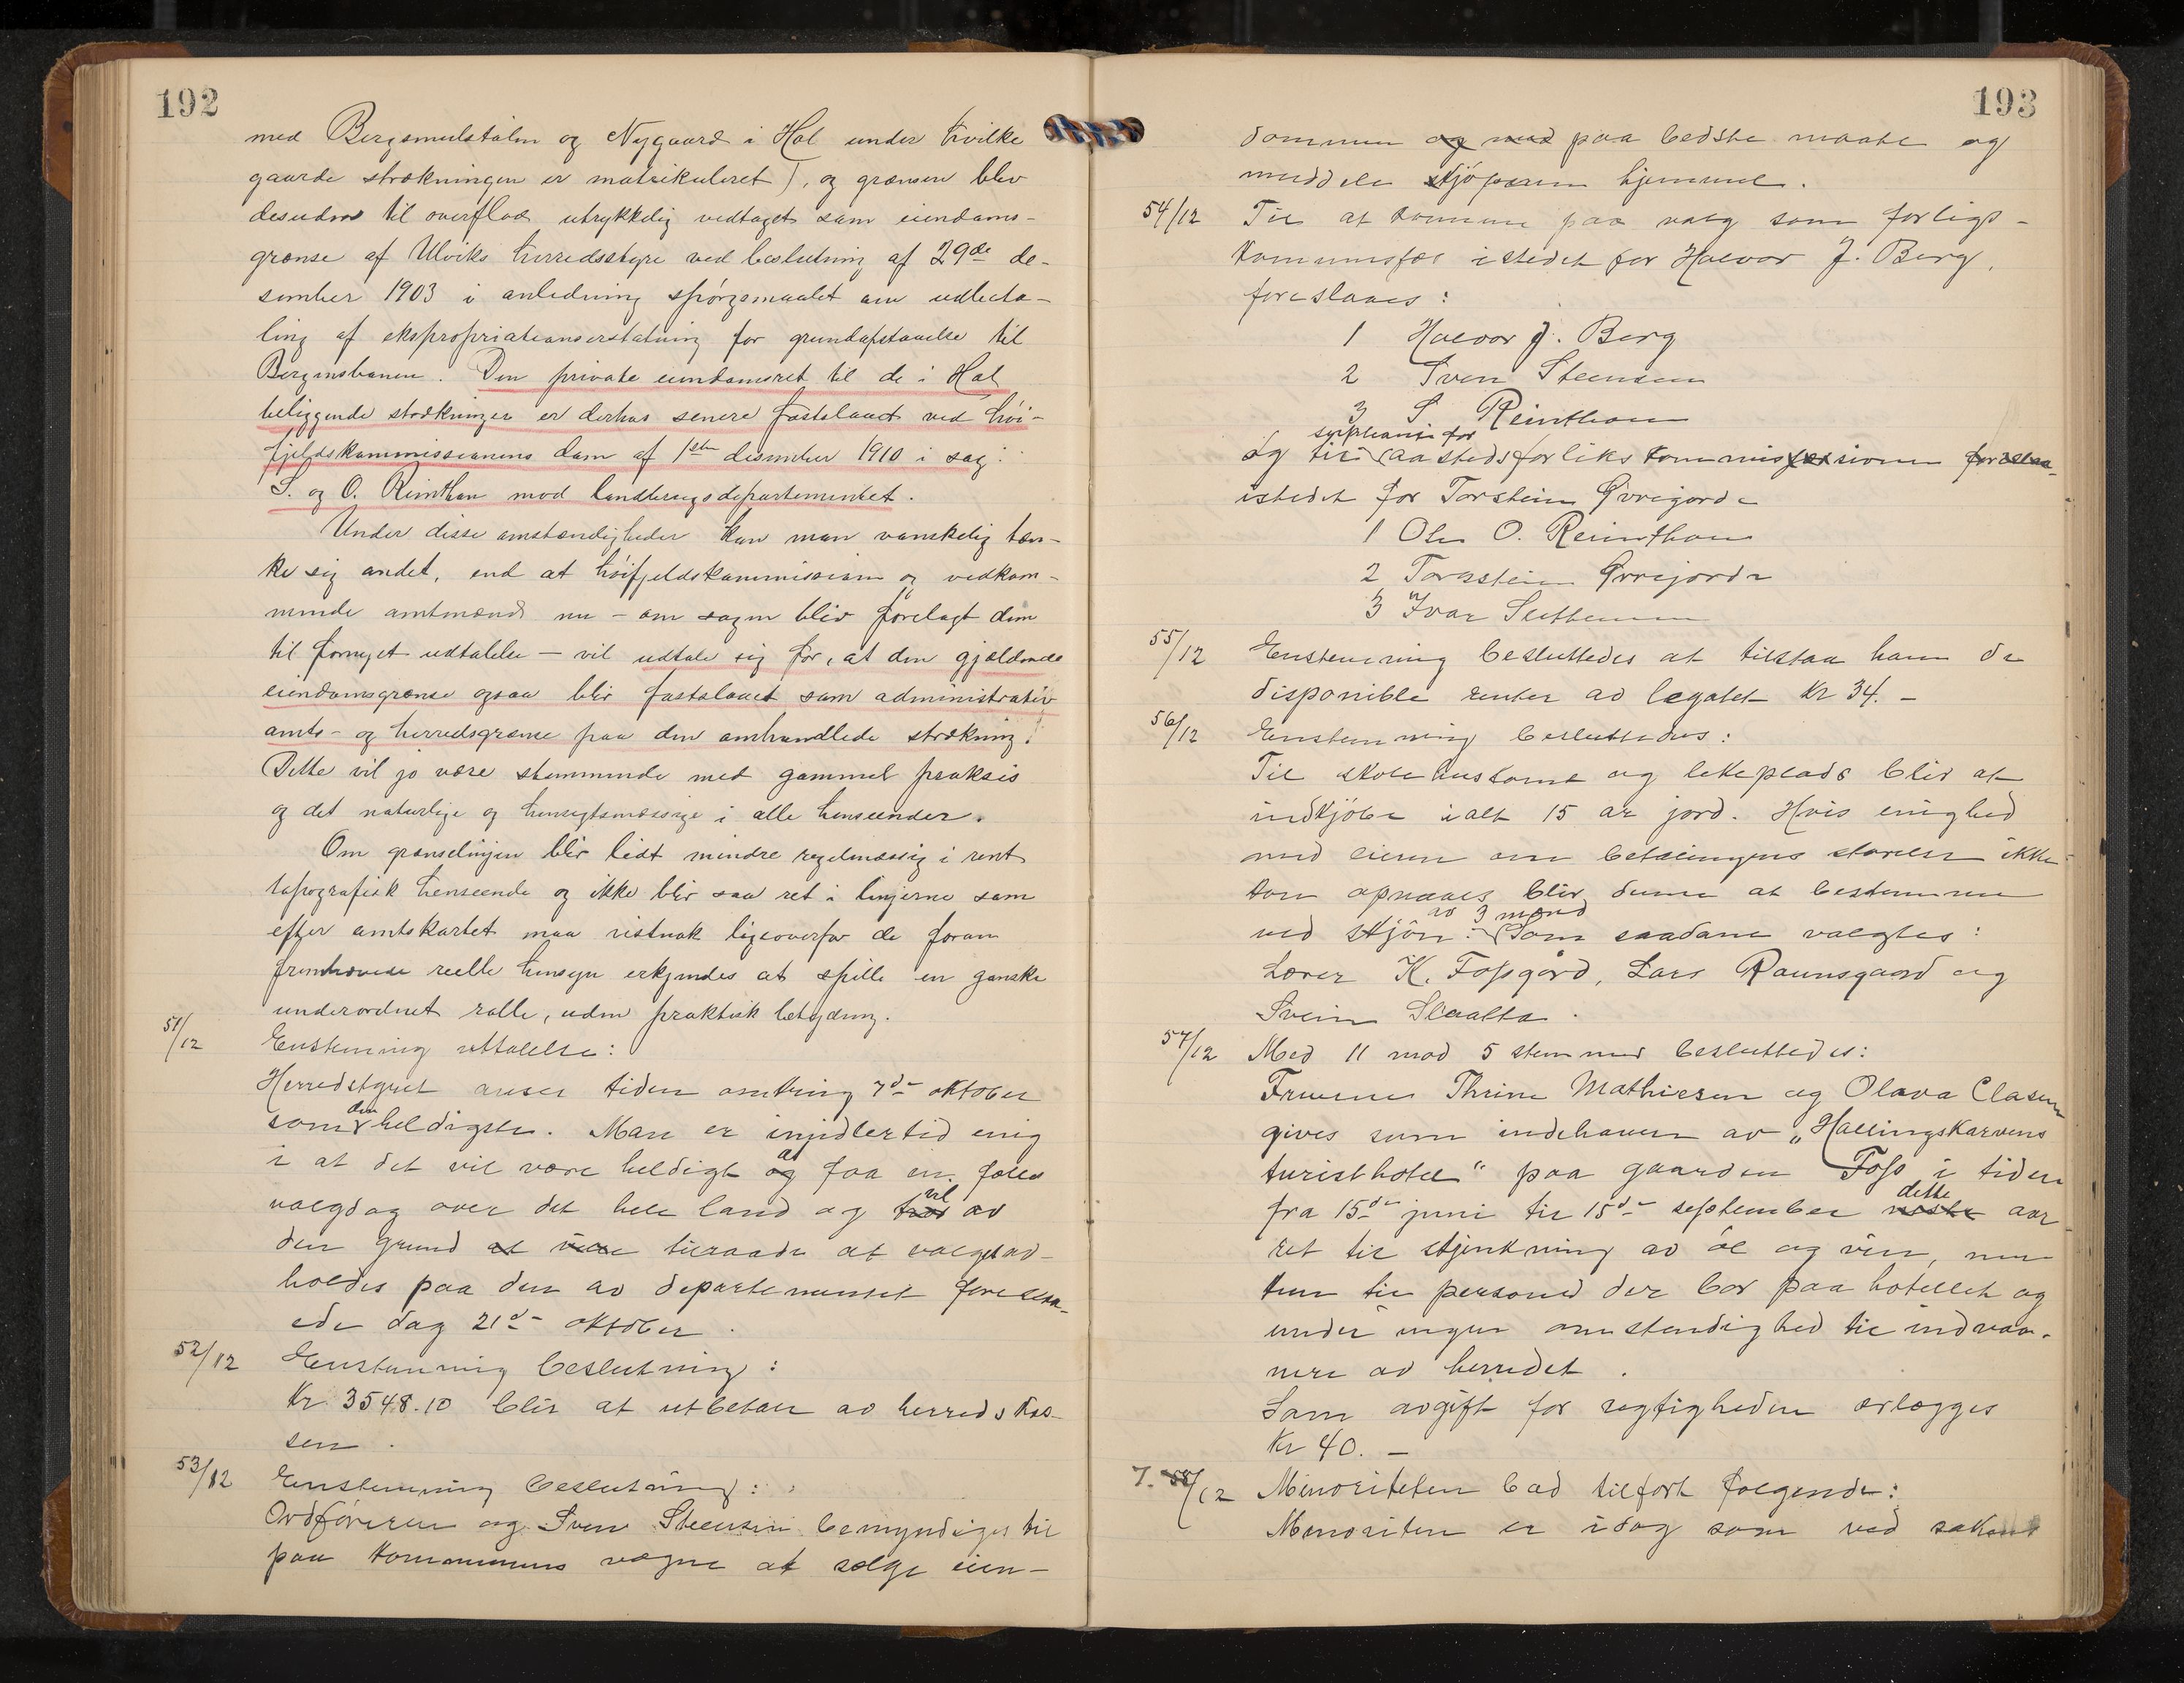 192
med Bergsmulstølen og Nygaard i Hol under hvilke
gaarde strækningen er matrikuleret), og grænsen blev
desuden til overflod utrykkelig vedtaget som eiendoms-
grænse af Ulviks herredsstyre ved beslutning af 29de de-
sember 1903 i anledning spörgsmaalet om udbeta-
ling af ekspropriationserstatning for grundafstaaelse til
Bergensbanen. Den private eiendomsret til de i Hol
beliggende strækninger er derhos senere fastslaaet ved höi-
fjeldskommissionens dom af 1ste desember 1910 i sag:
S. og O. Reinthon mod landbrugsdepartementet.
Under disse omstændigheder kan man vanskelig tæn-
ke sig andet, end at höifjeldskommission og vedkom-
mende amtmænd nu – om sagen blev forelagt dem
til fornyet udtalelse – vil udtale sig for, at den gjældende
eiendomsgrænse ogsaa blir fastslaaet som administrativ
amts- og herredsgrænse paa den omhandlede strækning.
Dette vil jo være stemmende med gammel praksis
og det naturlige og hensigtsmæssige i alle henseender.
Om grænselinjen blir lidt mindre regelmæssig i rent
topografisk henseende og ikke blir saa ret i linjerne som
efter amtskartet maa vistnok ligeoverfor de foran
fremhævede reelle hensyn erkjendes at spille en ganske
underordnet rolle, uden praktisk betydning.
51/12 Enstemmig uttalelse:
Herredstyret anser tiden omkring 7de oktober
som den heldigste. Man er imidlertid enig
i at det vil være heldigt og at faa en fælles
valgdag over det hele land og vil av
den grund at være tilraade at valget av-
holdes paa den av departementet foreslaa-
ede dag 21de oktober.
52/12 Enstemmig beslutning:
Kr 3548.10 blir at utbetale av herredskas-
sen.
53/12 Enstemmig beslutning:
Ordföreren og Sven Steensen bemyndiges til
paa kommunens vegne at sælge eien-
193
dommen og med paa bedste maate og
meddele kjöperen hjemmel.
54/12 Til at komme paa valg som forligs-
kommissær istedet for Halvor J. Berg,
foreslaaes:
1 Halvor J. Berg
2 Sven Steensen
3 S Reinthon
og til suppleant for aastedsforlikskommissionen foreslaa-
istedet for Torstein Øvrejorde
1 Ole O. Reinthon
2 Torstein Øvrejorde
3 Ivar Slettemoen
55/12 Enstemmig besluttedes at tilstaa ham de
disponible renter av legatet Kr 34.-
56/12 Enstemmig besluttedes:
Til skolehustomt og lekeplads blir at
indkjöbe ialt 15 ar jord. Hvis enighed
med eieren om betalingens størrelse ikke
kan opnaaes blir denne at bestemme
ved skjön av 3 mænd. Som saadane valgtes:
Lærer K. Fossgård, Lars Raunsgaard og
Svein Slaatta.
57/12 Med 11 mod 5 stemmer besluttedes:
Fruerne Thrine Mathiesen og Olava Clasen
gives som indehavere av „Hallingskarvens
turisthotel“ paa gaarden Foss i tiden
fra 15de juni til 15de september næste dette aar
ret til skjenkning av öl og vin, men
kun til personer der bor paa hotellet og
under ingen omstendighed til indvaa-
nere av herredet.
Som avgift for rettigheden erlægges
Kr 40.–
7. 58/12 Minoriteten bad tilført følgende:
Minoriteten er idag som ved sakens